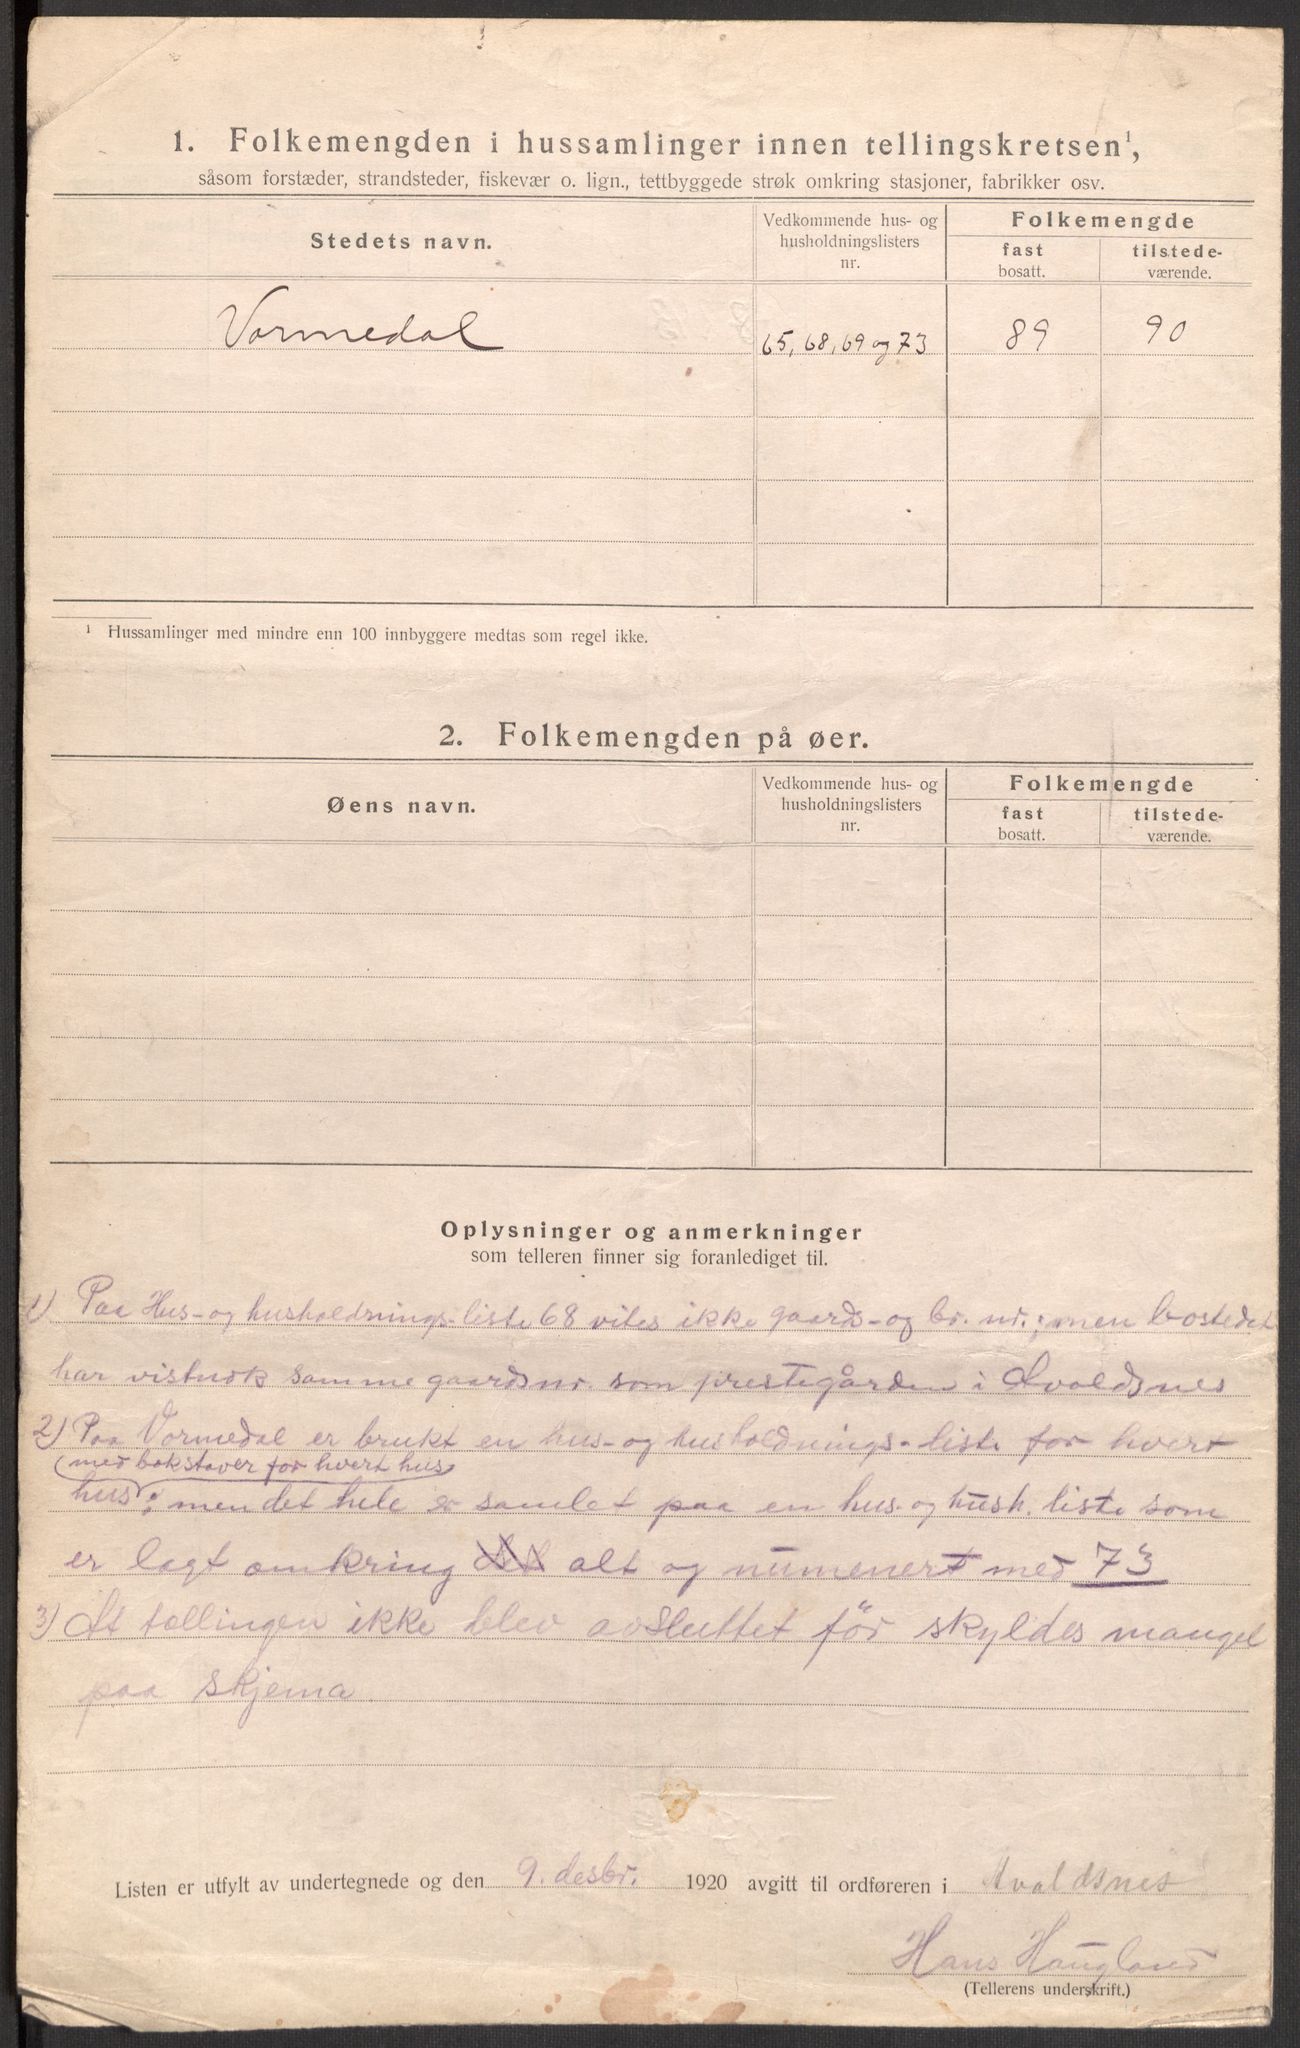 1. Folkemengden i hussamlinger innen tellingskretsen¹,
såsom forstæder, strandsteder, fiskevær o. lign., tettbyggede strøk omkring stasjoner, fabrikker osv.
Stedets navn.
Vedkommende hus- og
husholdningslisters
nr.
Folkemengde
fast
bosatt.
tilstede-
værende.
Vormedal
65, 68, 69 og 73
89
90
¹ Hussamlinger med mindre enn 100 innbyggere medtas som regel ikke.
2. Folkemengden på øer.
Øens navn.
Vedkommende hus- og
husholdningslisters
nr.
Folkemengde
fast
bosatt.
tilstede-
værende.
Oplysninger og anmerkninger
som telleren finner sig foranlediget til.
1) Paa Hus- og husholdnings-liste 68 vites ikke gaards- og br. nr.; men bostedet
har vistnok samme gaardsnr. som prestegården i Avaldsnes
2) Paa Vormedal er brukt en hus- og husholdnings-liste for hvert
(med bokstaver for hvert hus)
hus; men det hele er samlet paa en hus- og hush. liste som
er lagt omkring alt og numenert med 73
3) At tællingen ikke blev avsluttet för skyldes mangel
paa skjema
Listen er utfylt av undertegnede og den 9. desbr. 1920 avgitt til ordføreren i Avaldsnes
Hans Haugland
(Tellerens underskrift.)